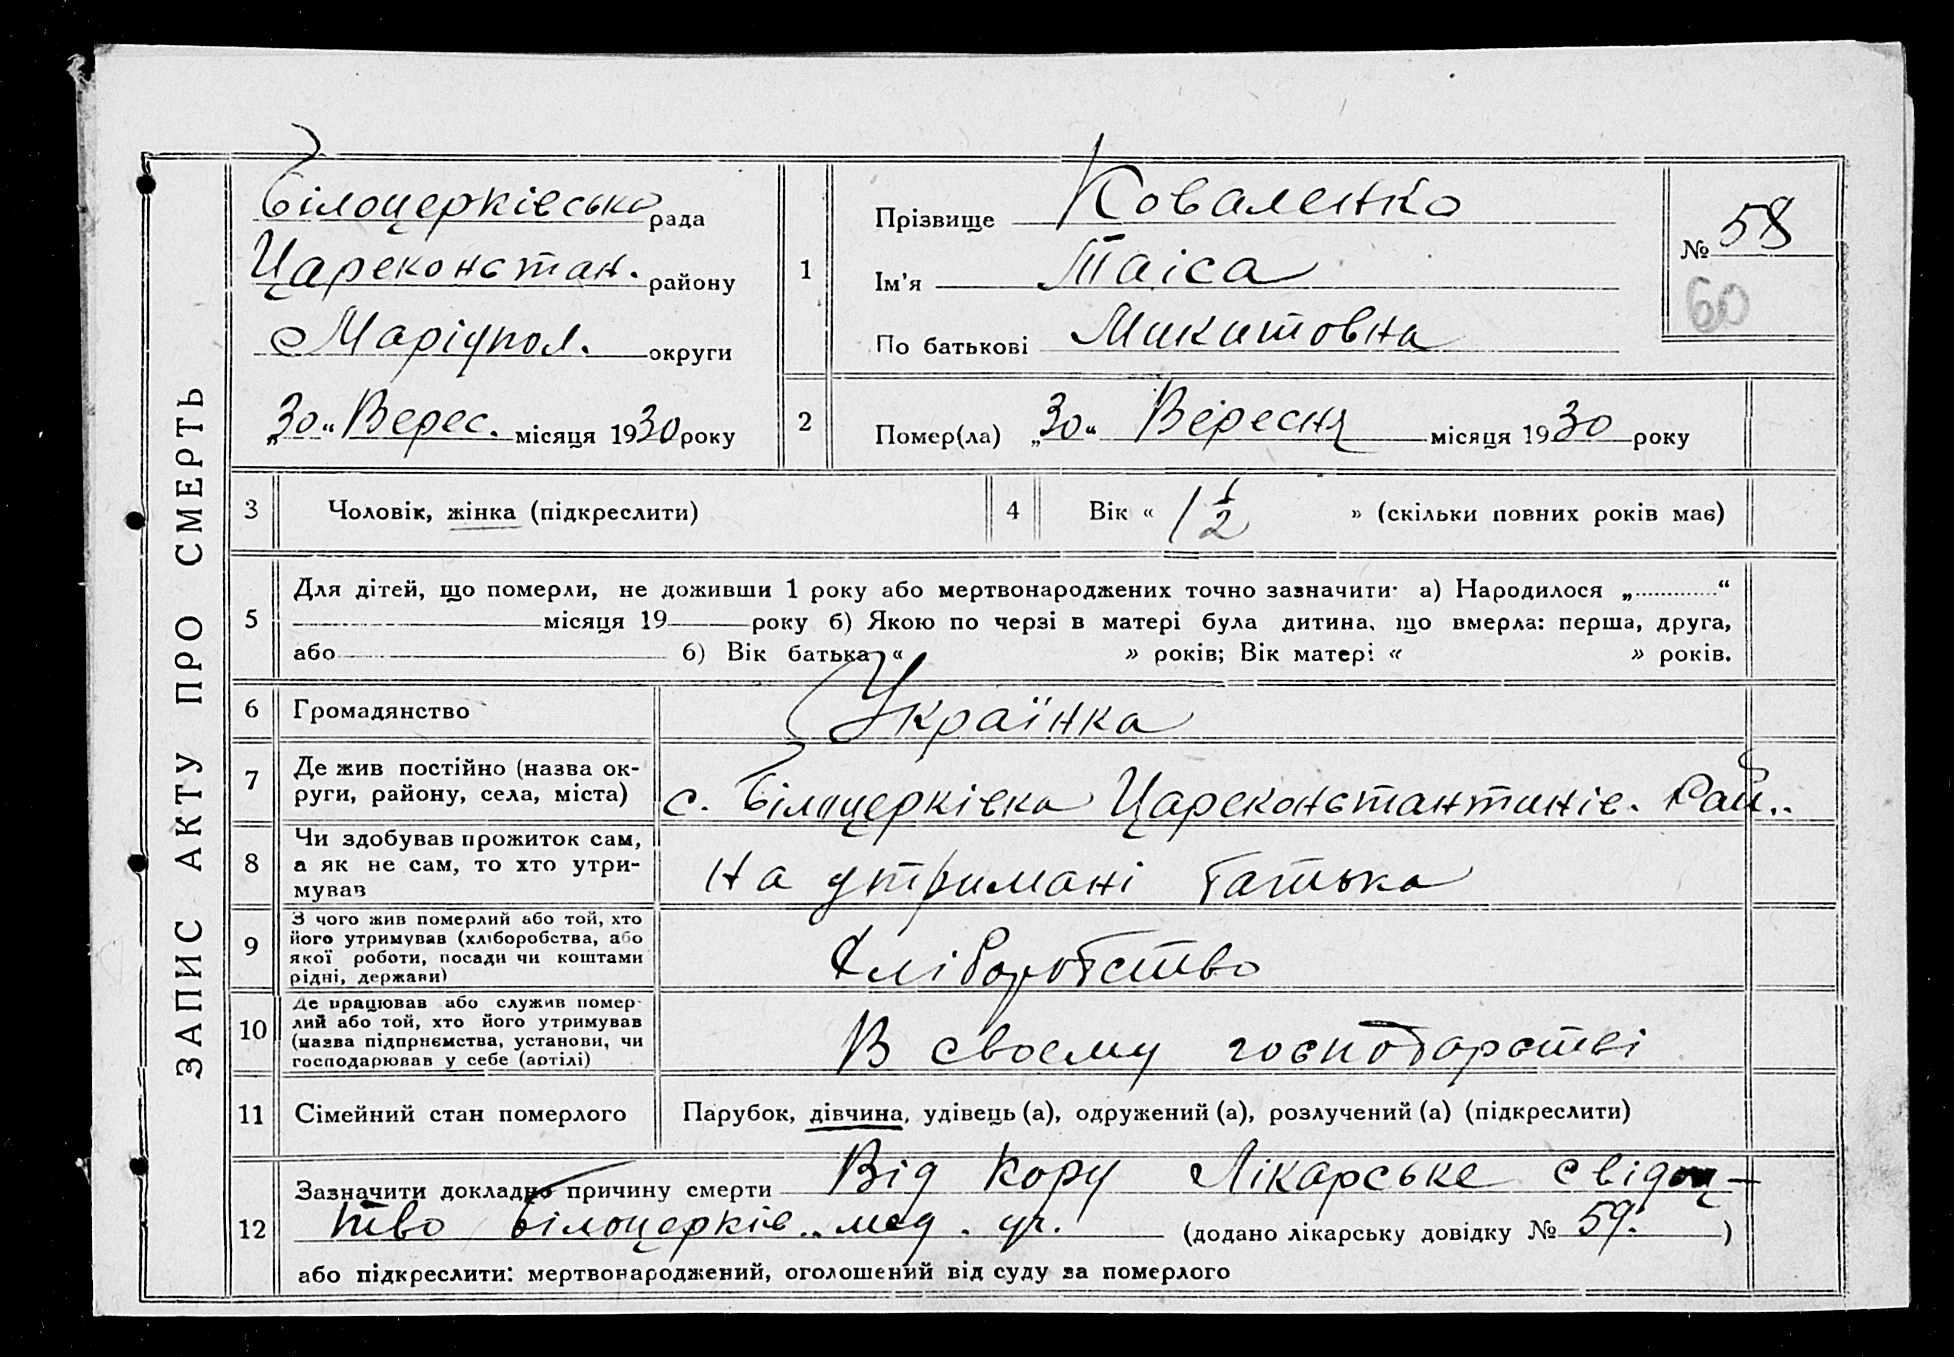 ЗАПИС АКТУ ПРО СМЕРТЬ
Білоцерківсько рада
Цареконстан. району
Маріупол. округи
„30“ Верес. місяця 1930 року
1
Прізвище Коваленко
Ім'я Таіса
По батькові Микитовна
№ 58
60
2
Помер(ла) „30“ Вересня місяця 1930 року
3 Чоловік, жінка (підкреслити)
4 Вік « 1 1/2 » (скільки повних років має)
5
Для дітей, що померли, не доживши 1 року або мертвонароджених точно зазначити: а) Народилося „ “
місяця 19 року б) Якою по черзі в матері була дитина, що вмерла: перша, друга,
або б) Вік батька « » років; Вік матері « » років.
6 Громадянство Українка
7 Де жив постійно (назва ок-
руги, району, села, міста)
с. Білоцерківка Цареконстантинів. Рай..
8 Чи здобував прожиток сам,
а як не сам, то хто утри-
мував
На утримані батька
9 З чого жив померлий або той, хто
його утримував (хліборобства, або
якої роботи, посади чи коштами
рідні, держави)
Хліборобство
10 Де працював або служив помер-
лий або той, хто його утримував
(назва підприємства, установи, чи
господарював у себе (артілі)
В своєму господарстві
11 Сімейний стан померлого Парубок, дівчина, удівець (а), одружений (а), розлучений (а) (підкреслити)
12
Зазначити докладно причину смерти Від кору Лікарське свідоц-
тво Білоцерків.. мед. уч. (додано лікарську довідку № 59. )
або підкреслити: мертвонароджений, оголошений від суду за померлого